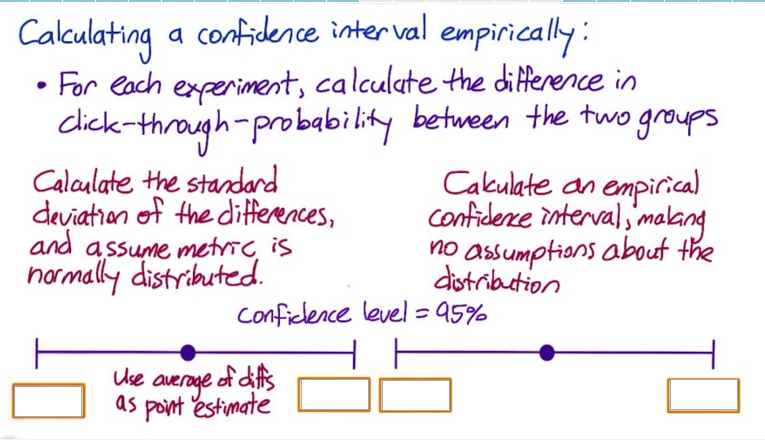 Calculating a confidence interval empirically:
• For each experiment, calculate the difference in
click-through-probability between the two groups
Calculate the standard
deviation of the differences,
and assume metric is
normally distributed.
Calculate an empirical
confidence interval, making
no assumptions about the
distribution
Confidence level = 95%
Use average of diffs
as point estimate